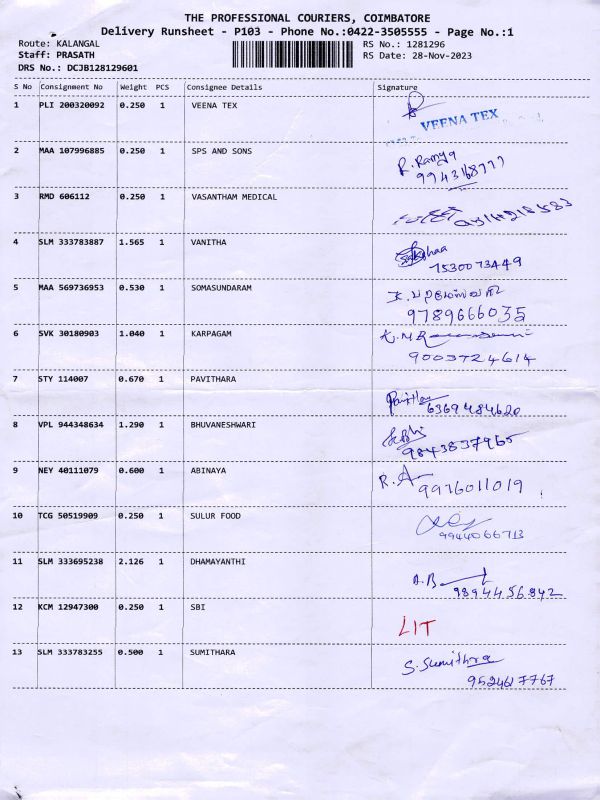 THE PROFESSIONAL COURIERS, COIMBATORE
Delivery Runsheet - P103 - Phone No.:0422-3505555 - Page No.:1
Route: KALANGAL RS No.: 1281296
Staff: PRASATH RS Date: 28-Nov-2023
DRS No.: DCJB128129601
S No Consignment No Weight PCS Consignee Details Signature
1 PLI 200320092 0.250 1 VEENA TEX
VEENA TEX
2 MAA 107996885 0.250 1 SPS AND SONS R. Ramya
9943168777
3 RMD 606112 0.250 1 VASANTHAM MEDICAL
4 SLM 333783887 1.565 1 VANITHA
7530073449
5 MAA 569736953 0.530 1 SOMASUNDARAM
9789666035
6 SVK 30180903 1.040 1 KARPAGAM
9003724614
7 STY 114007 0.670 1 PAVITHARA
6369484620
8 VPL 944348634 1.290 1 BHUVANESHWARI
9843837965
9 NEY 40111079 0.600 1 ABINAYA R.A
9976011019
10 TCG 50519909 0.250 1 SULUR FOOD
9944066713
11 SLM 333695238 2.126 1 DHAMAYANTHI A.B
9894456842
12 KCM 12947300 0.250 1 SBI LIT
13 SLM 333783255 0.500 1 SUMITHARA S. Sumithra
9524617767